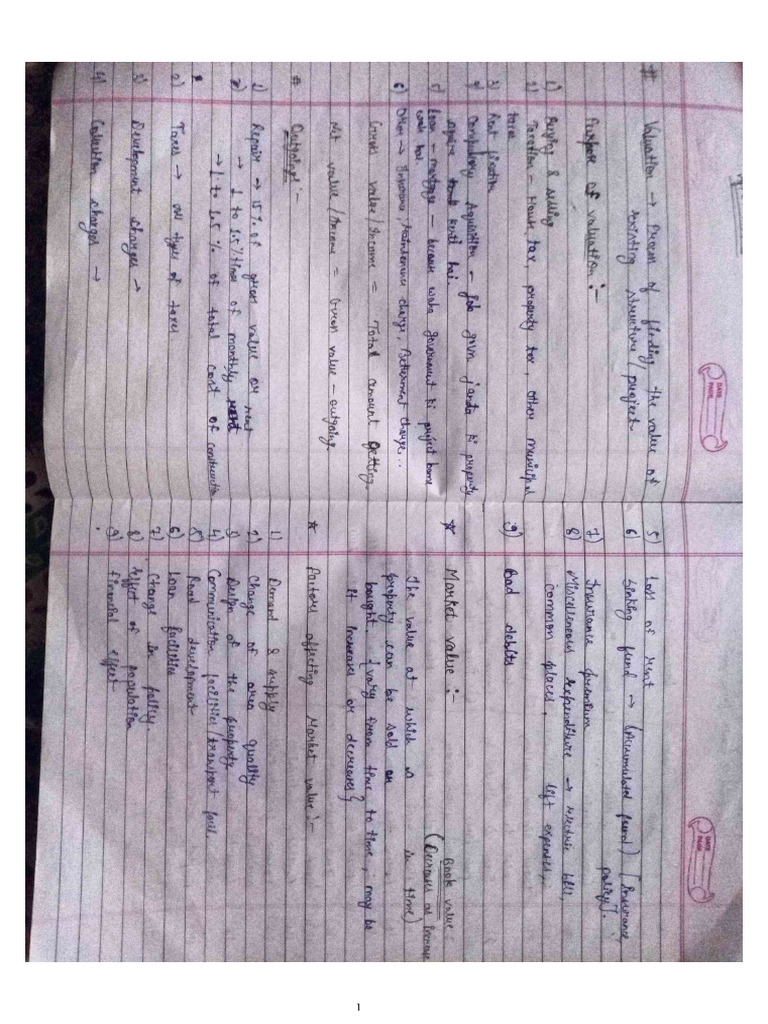 # Valuation → Process of finding the value of
existing structure / project
Purpose of valuation :-
1) Buying & selling
2) Taxation - House tax, property tax, other municipal
taxes
3) Rent fixation
4) Compulsory Acquisition - Job govn janta ki property
aquire karti hai.
5) Loan - mortgage - because waha government ki project bante
6) Other → Insurance, maintenence charge, Betterment charge, ..
Gross value / Income = Total amount getting.
Net value / Income = Gross value - outgoing
# Outgoings :-
1) Repairs → 15% of gross value or rent
→ 1 to 1.5 % of monthly rent
→ 1 to 1.5 % of total cost of construction
2) Taxes → all types of taxes
3) Development charges →
4) Collection charges →
DATE
PAGE
5) Loss of rent
6) Sinking fund → (Accumulated fund) [Insurance
policy].
7) Insurance premium
8) Miscellaneous expenditure → electric bill,
common places, lift expenses,
9) Bad debits
Book value
(Decreases as increase
in time)
☆ Market value :-
The value at which a
property can be sold or
bought. {vary from time to time, may be
it increases or decreases}
★ Factors affecting Market value :-
1) Demand & supply
2) Change of area quality
3) Design of the property
4) Communication facilities / transport faci
5) Road development
6) Loan facilities
7) Change in policy
8) Effect of population
9) Financial effect
DATE
PAGE
1